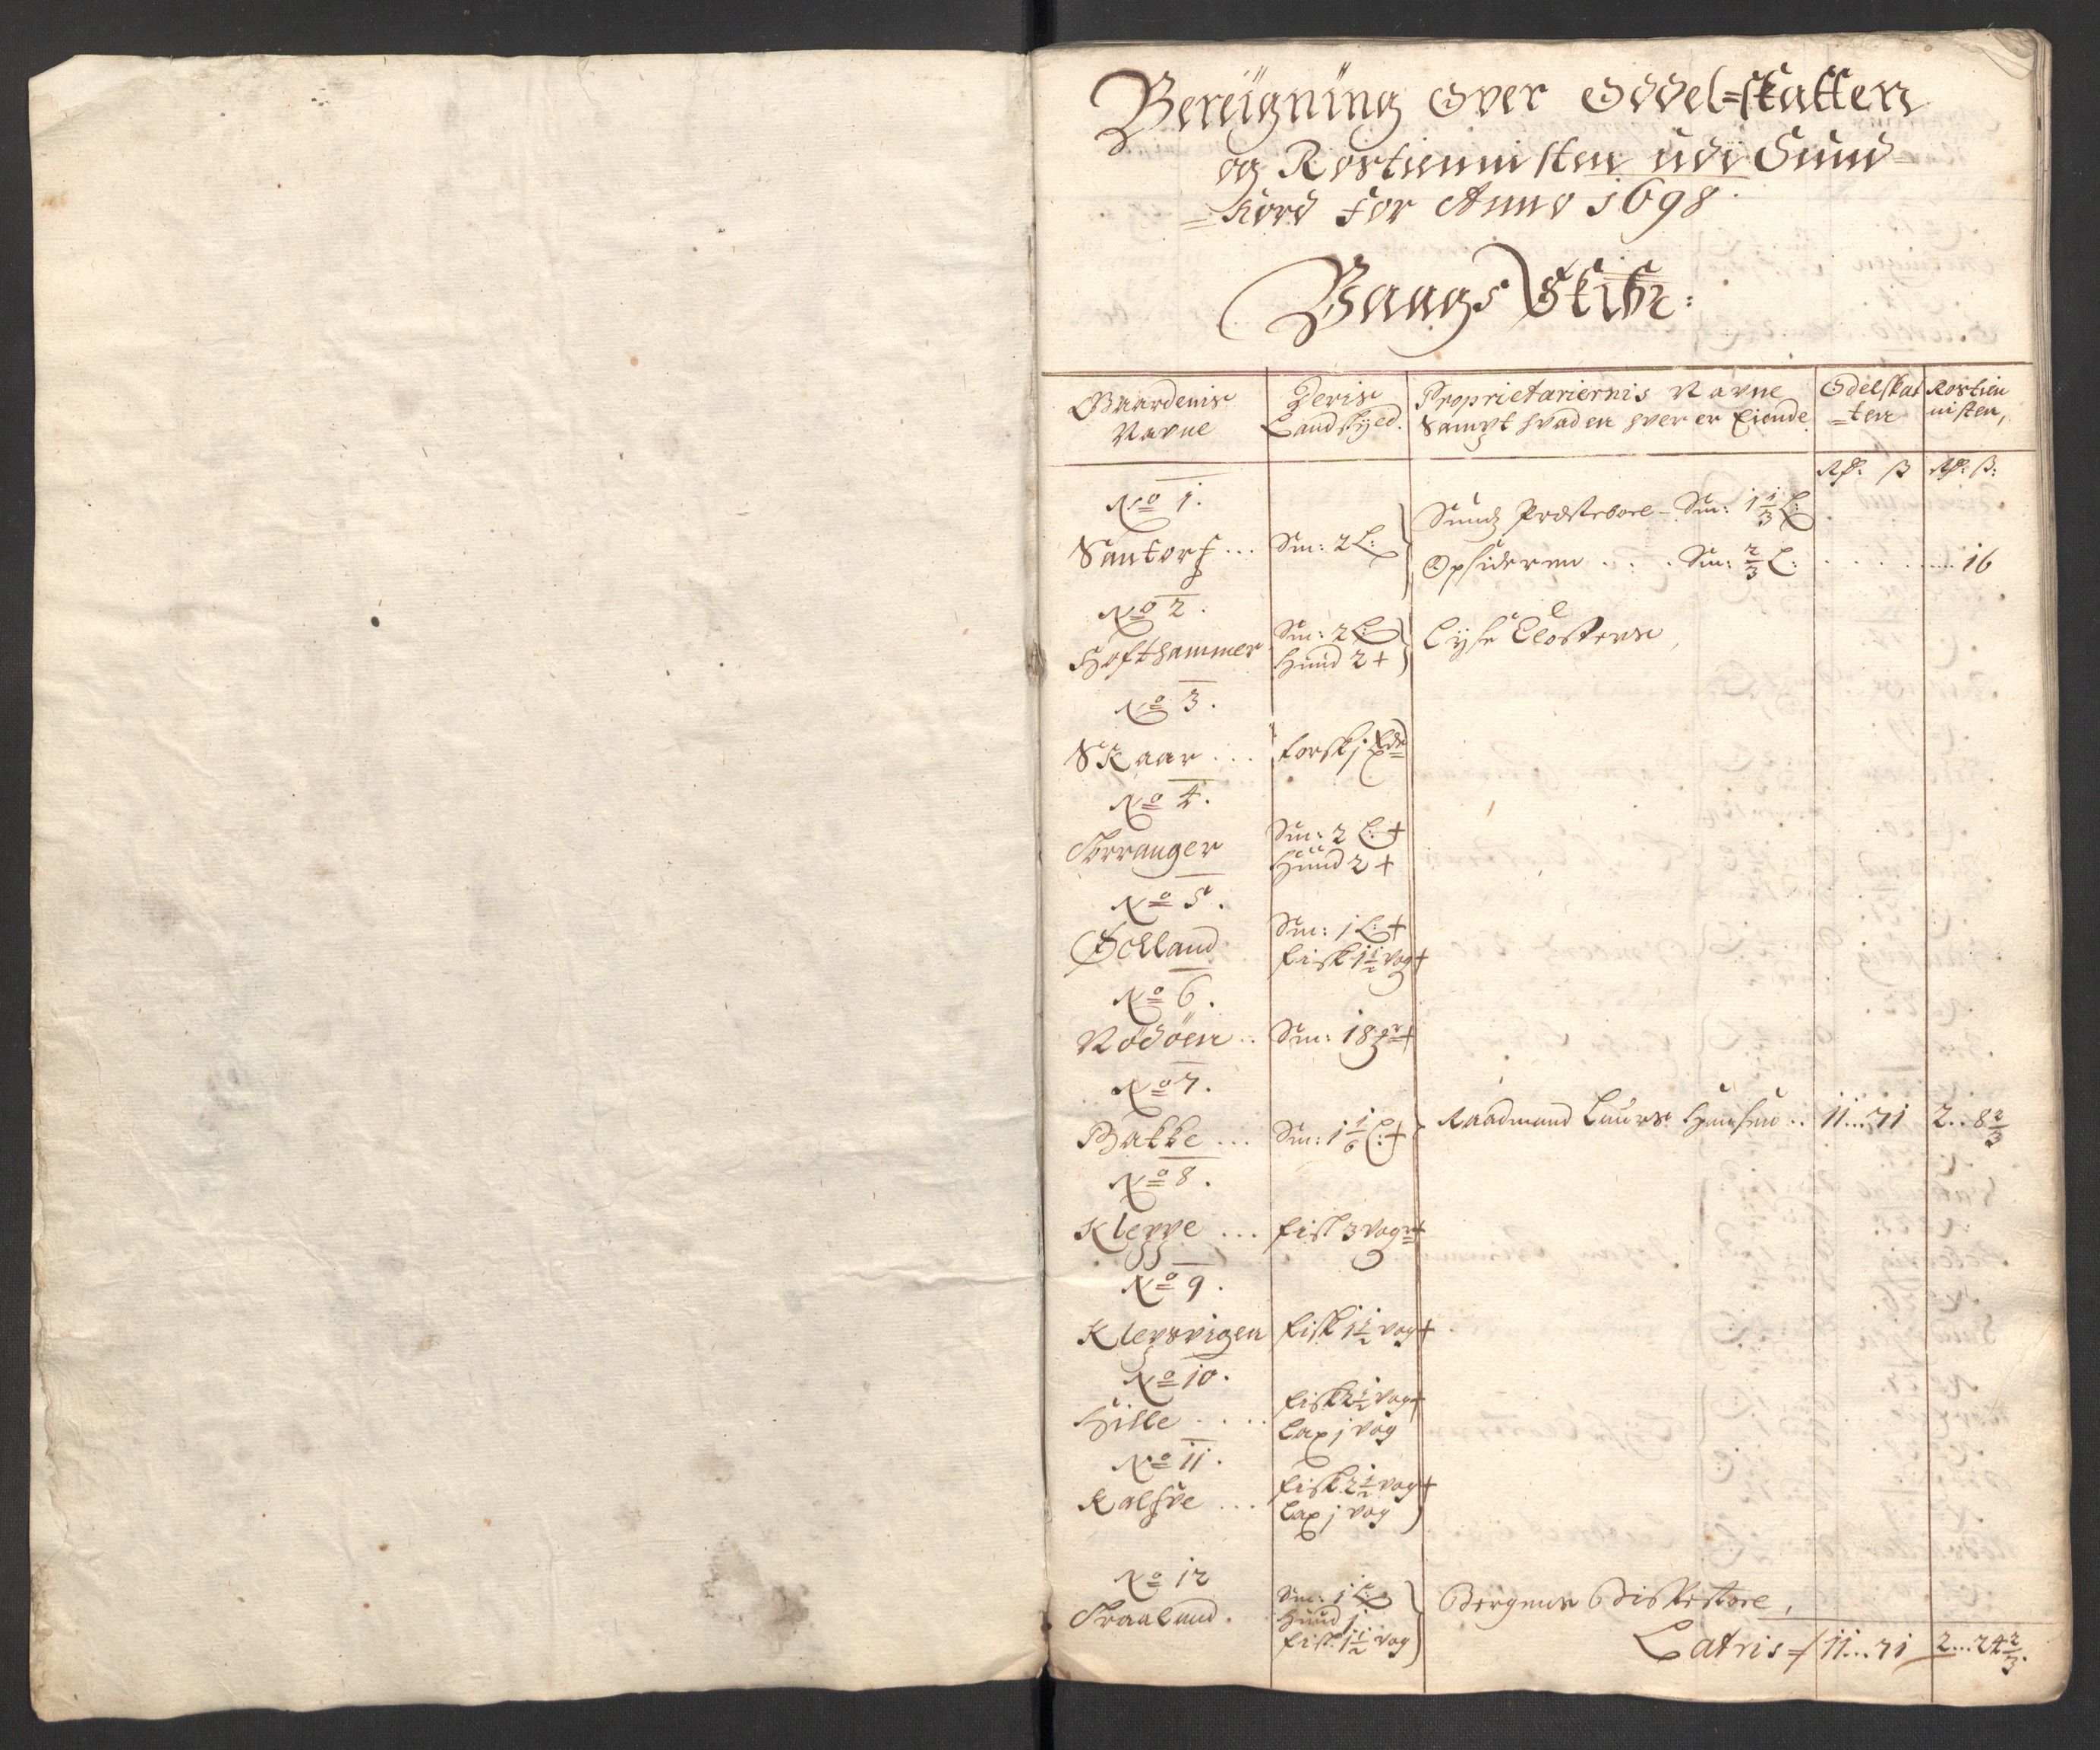 Bereigning Over Oddel=skatten
og Rostiennisten udi Sund=
=hord For Anno 1698.
Vaags Skibr:
Gaardenis Navne | Deris Landskyld. | Proprietariernis Navne Sampt hvad en hver er Eiende | Odelskat=ten | Rostiennisten,
Rdr. ß | Rdr: ß:
No 1.
Santorf ... | Sm: 2 L: | Sunds Præsteboel - Sm: 1 1/3 L:
Opsideren . . . Sm: 2/3 L: . . . . . 16
No 2.
Hofthammer | Sm: 2 L: Huud 2 + | Lyse Closters
No 3.
Skaar .... | Forsk j
No 4.
Torranger | Sm: 2 L: + Huud 2 +
No 5.
Hølland | Sm: 1 L: + Fisk 1 1/2 vog +
No 6.
Rødøen .. | Sm: 18 +
No 7.
Bakke ... | Sm: 1 1/6 L: + | Raadmand Laurs Hansen .. | 11...71 | 2..8 2/3
No 8.
Kleppe ... | Fisk 3 vogr +
No 9.
Klepsvigen | Fisk 1 1/2 vog +
No 10.
Hille .... | Fisk 2 1/2 vog + Lax j vog
No 11.
Kalfve ... | Fisk 2 1/2 vog + Lax j vog
No 12
Traaland . | Sm: 1 L: Huud 1 Fisk 1 1/2 vog | Bergens Bispestoel,
Latris | 11...71 | 2...24 2/3.